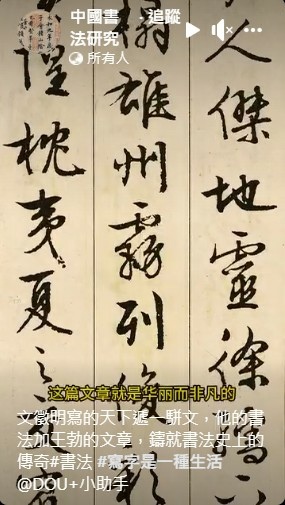 中國書 · 追蹤
法研究
所有人
人傑地靈徐孺下
榻雄州霧列俊彩
隍枕夷夏之
这篇文章就是华丽而非凡的
文徵明寫的天下遞一駢文，他的書
法加王勃的文章，鑄就書法史上的
傳奇#書法 #寫字是一種生活
@DOU+小助手